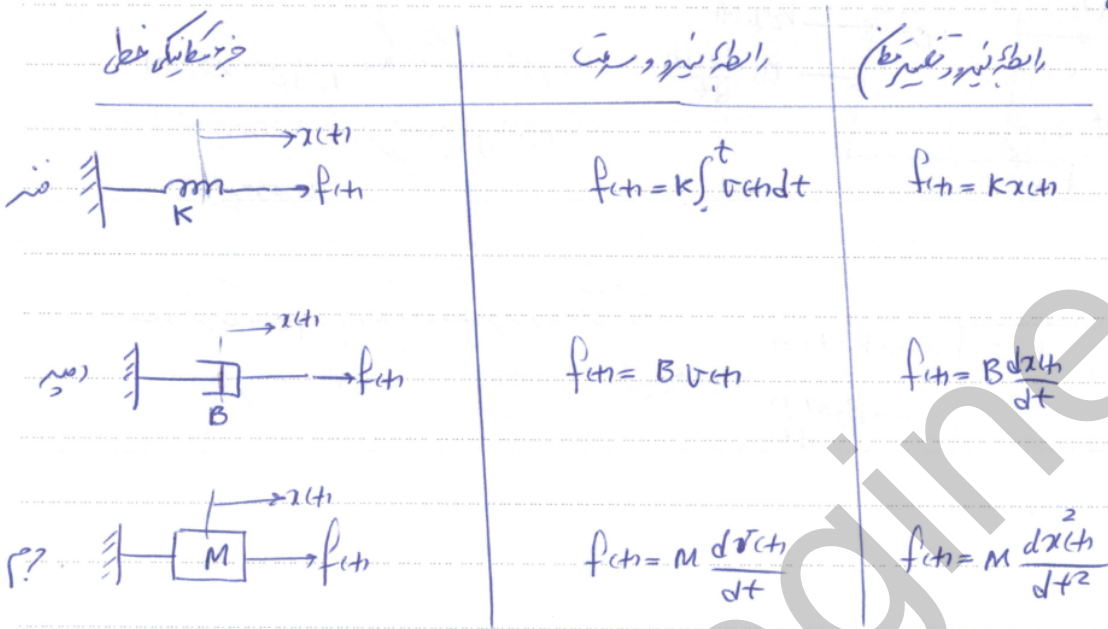 جزء مکانیکی خطی
رابطهٔ نیرو و سرعت
رابطهٔ نیرو و تغییر مکان
فنر
x(t)
f(t)
K
f(t) = K∫₀ᵗ v(t)dt
f(t) = Kx(t)
دمپر
x(t)
f(t)
B
f(t) = B v(t)
f(t) = B dx(t)/dt
جرم
x(t)
M
f(t)
f(t) = M dv(t)/dt
f(t) = M dx²(t)/dt²
gine